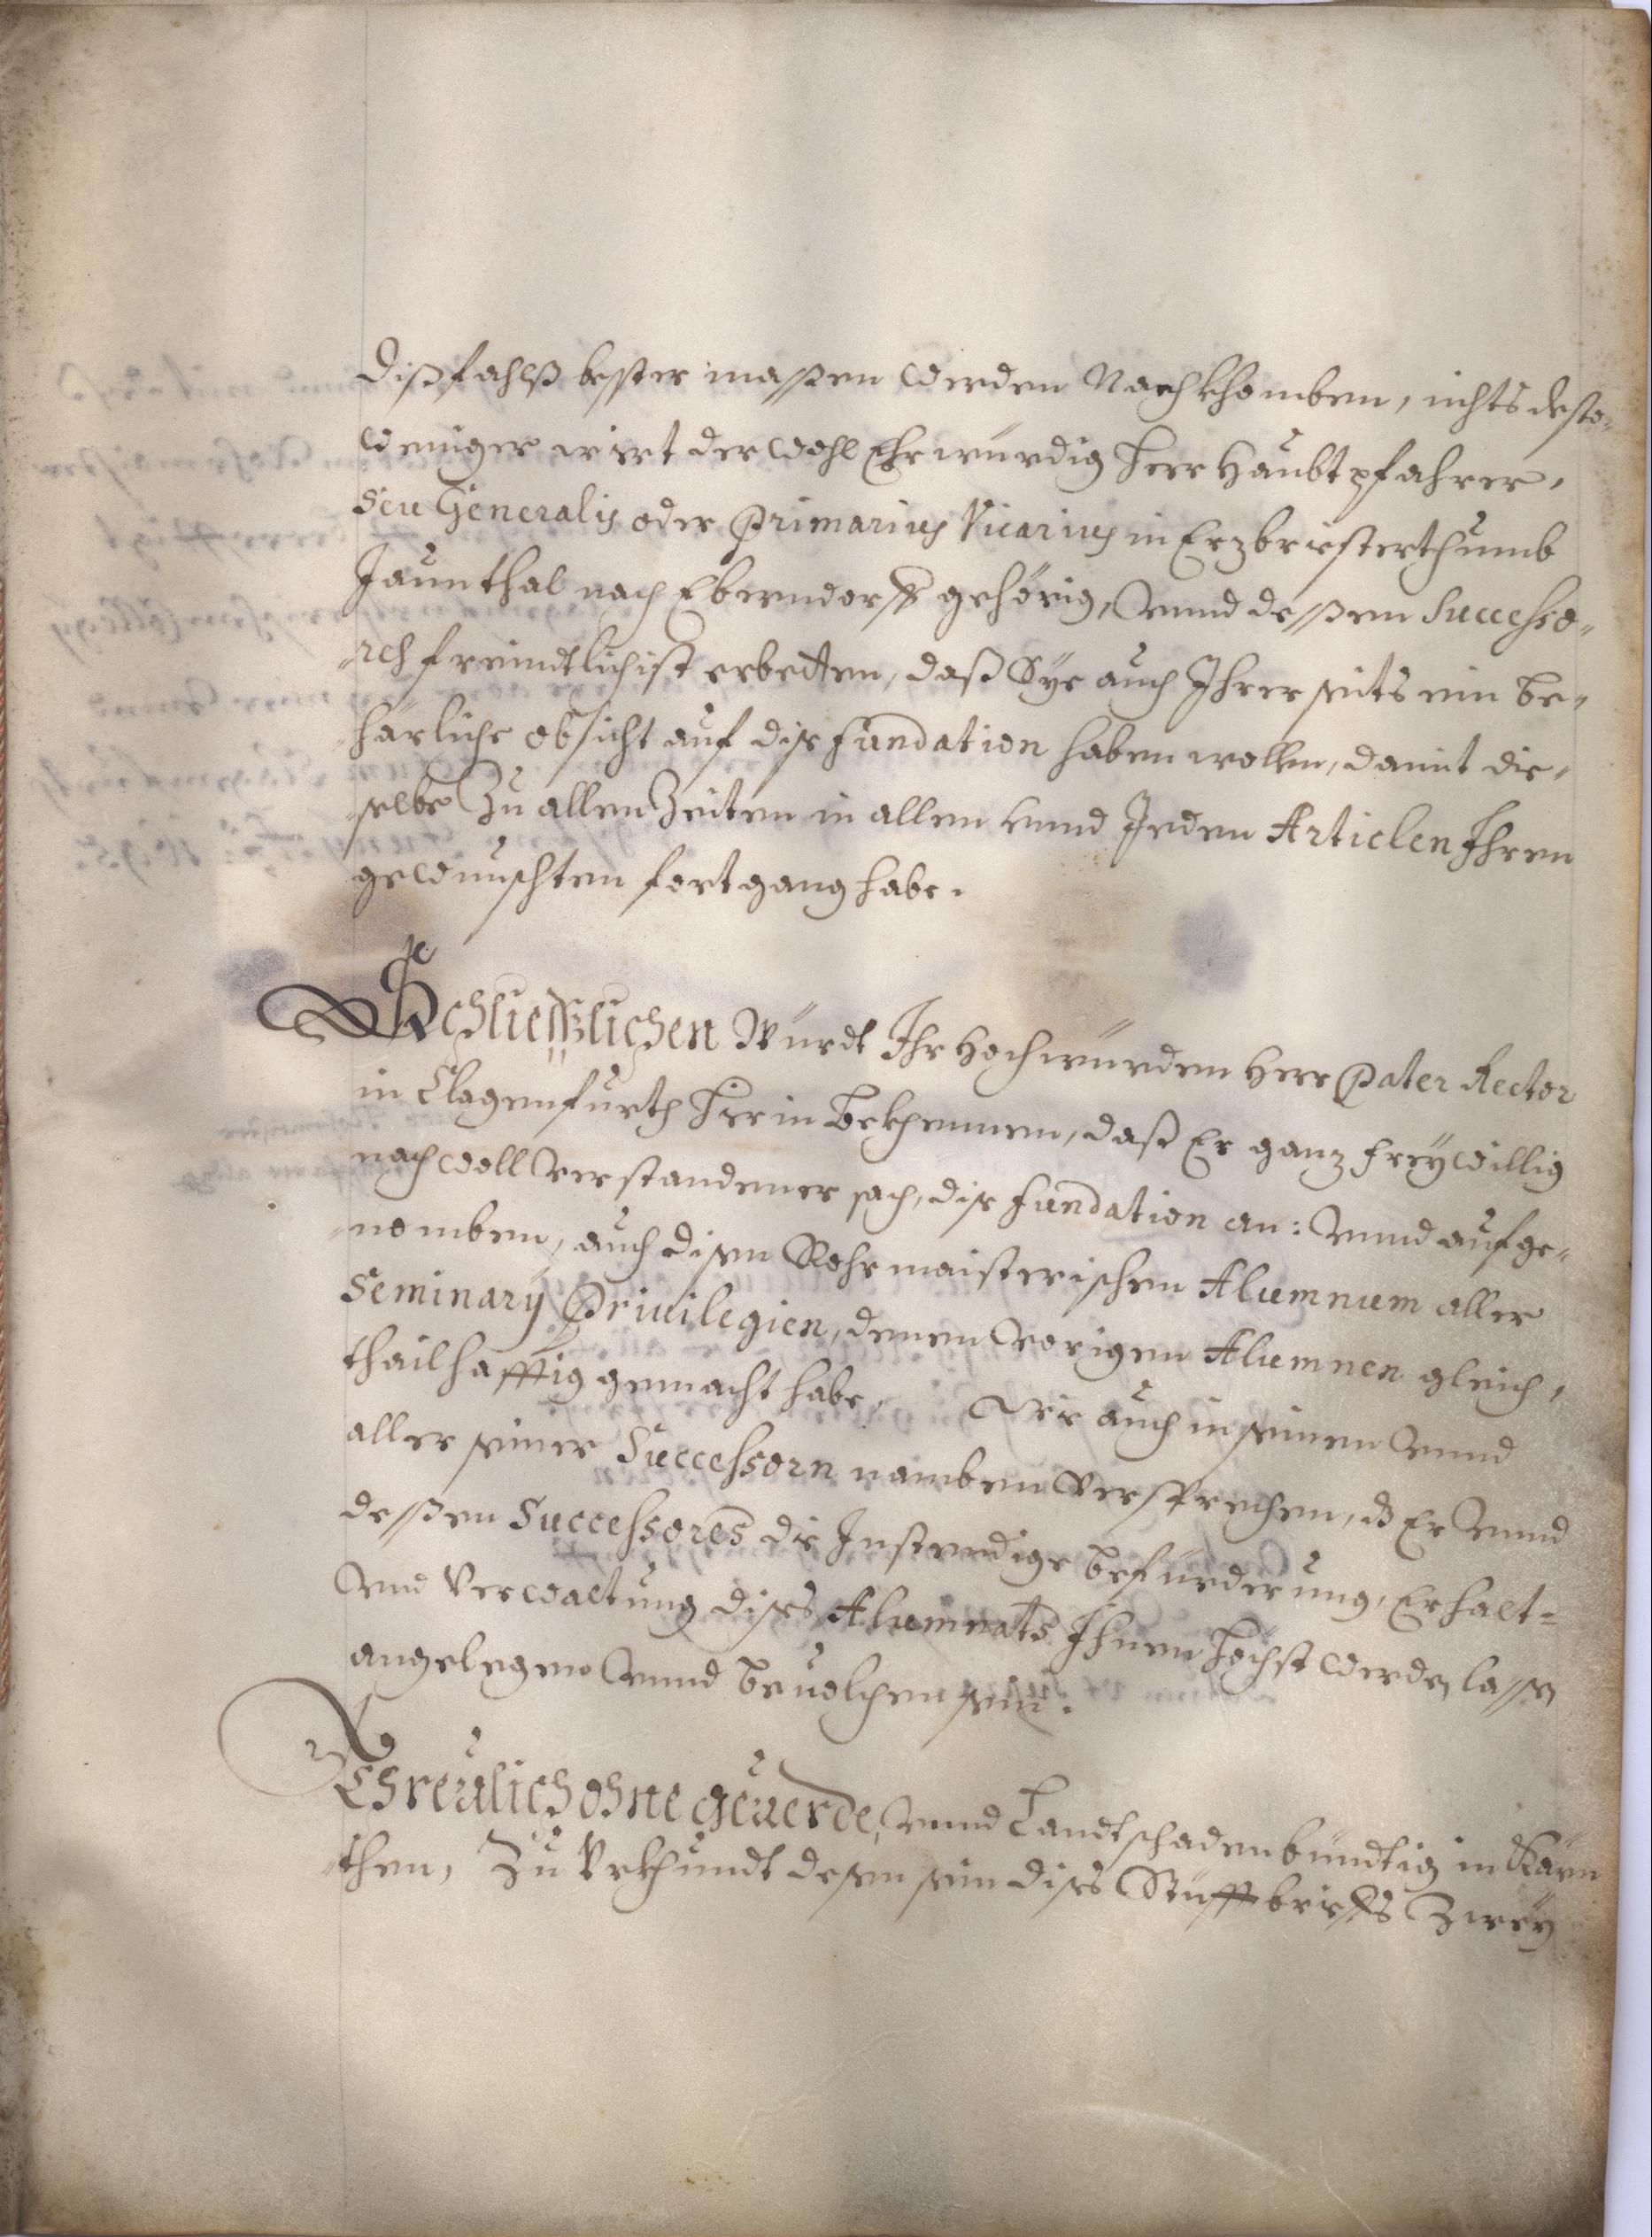 dißfahlß bester massen werden Nachkhomben, nichts desto-
weniger wirt der wohl Ehrwürdig Herr Haubtpfahrer,
Seu Generalis oder Primarius Vicarius in Erzbriesterthumb
Jaunthal nach Eberndorff gehörig, vnnd dessen Successo-
res freindtlichist erbetten, daß Sye auch Ihrerseits ein be-
härliche obsicht auf dise fundation haben wollen, damit die-
selbe Zu allen Zeiten in allen vnnd Jeden Articlen Ihren
gewünschten fortgang habe.
Schliesslichen Würdt Ihr Hochwürden Herr Pater Rector
in Clagenfurth hierin bekhennen, daß Er ganz freywillig
nach woll verstandener sach, dise fundation an: vnnd aufge-
nomben, auch disen Rohrmaisterischen Alumnum aller
Seminarÿ Priuilegien, denen vorigen Alumnen gleich,
thailhafftig gemacht habe, Wie auch in seinen vnnd
aller seiner Successorn namben versprechen, dß Er vnnd
dessen Successores die Instendige befürderung, Erhalt-
vnd Verwaltung dises Alumnats Ihnen höchst werden lassen
angelegen vnnd beuolchen sein.
Threulich ohne geuerde, vnnd Landtschadenbündtig in Kärn
then, Zu Vrkhundt dessen sein dises Stüfftbrieffs Zweÿ